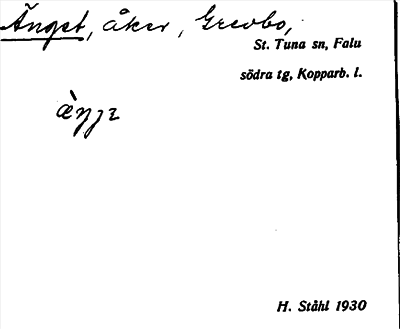 Änget, åker, Grevbo,
St. Tuna sn, Falu
södra tg, Kopparb. l.
H. Ståhl 1930